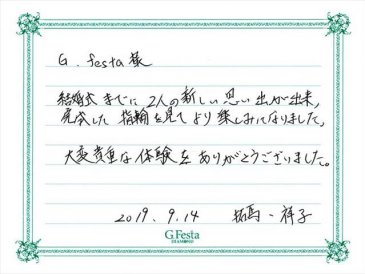 G.festa 様
結婚式までに2人の新しい思い出が出来、
完成した指輪を見てより楽しみになりました。
大変貴重な体験をありがとうございました。
2019.9.14 拓馬・祥子
G.Festa
DIAMOND